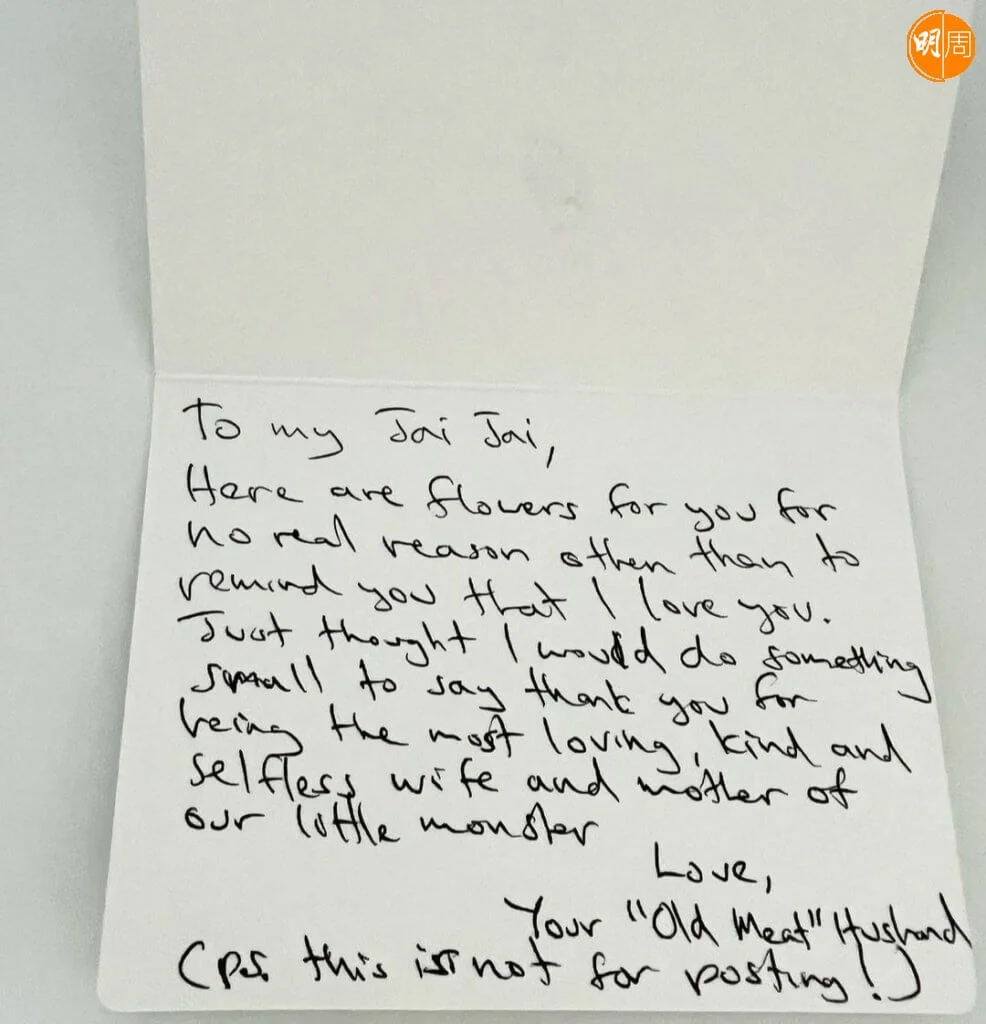 明周
To my Jai Jai,
Here are flowers for you for
no real reason other than to
remind you that I love you.
Just thought I would do something
small to say thank you for
being the most loving, kind and
selfless wife and mother of
our little monster
Love,
Your "Old Meat" Husband
(ps. this is not for posting!)